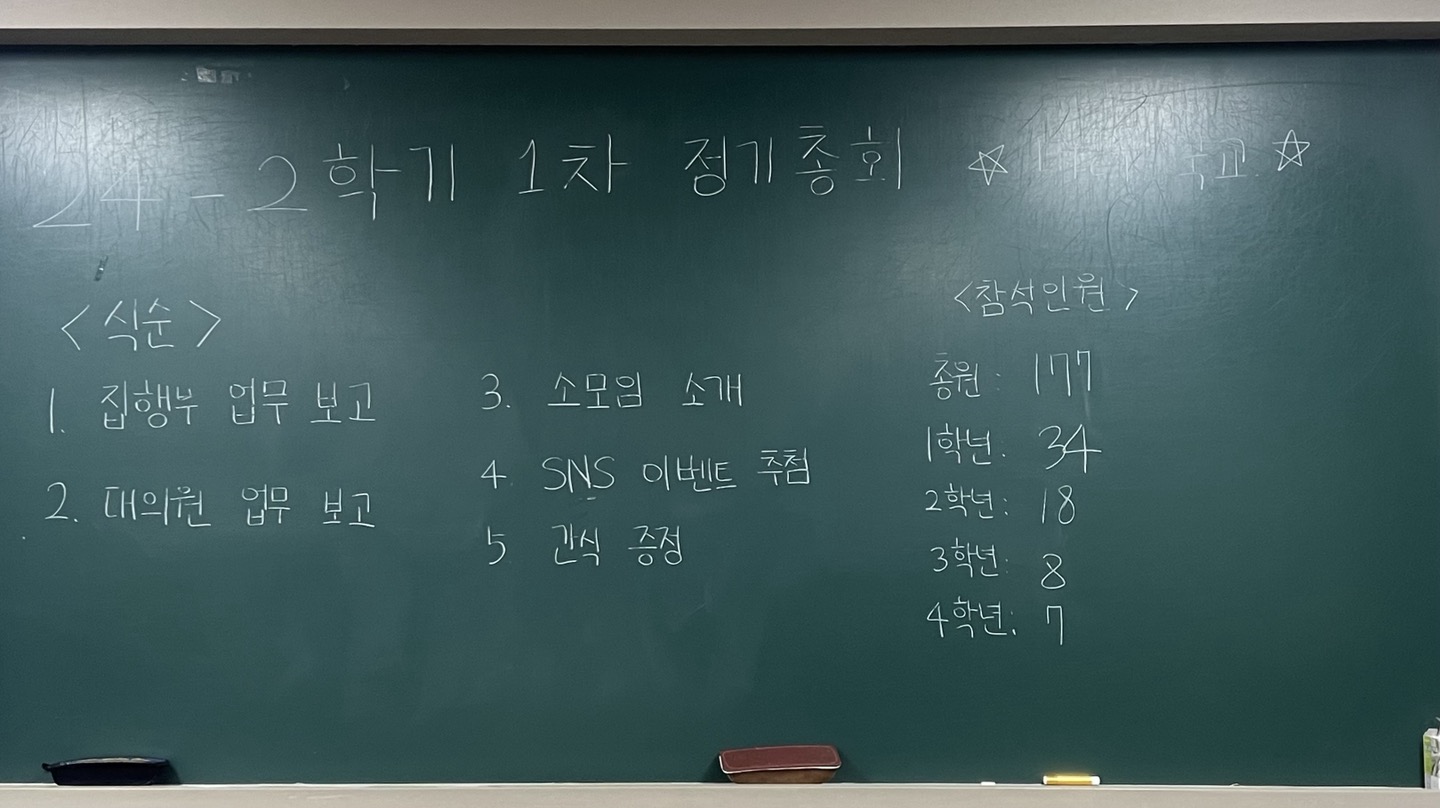 24-2학기 1차 정기총회 ☆ ☆
<식순>
1. 집행부 업무 보고
2. 대의원 업무 보고
3. 소모임 소개
4. SNS 이벤트 추첨
5 간식 증정
<참석인원>
총원: 177
1학년: 34
2학년: 18
3학년: 8
4학년: 7